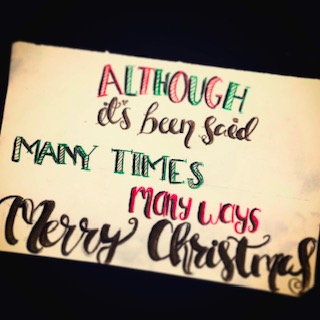 ALTHOUGH
it's been said
MANY TIMES
many ways
Merry Christmas